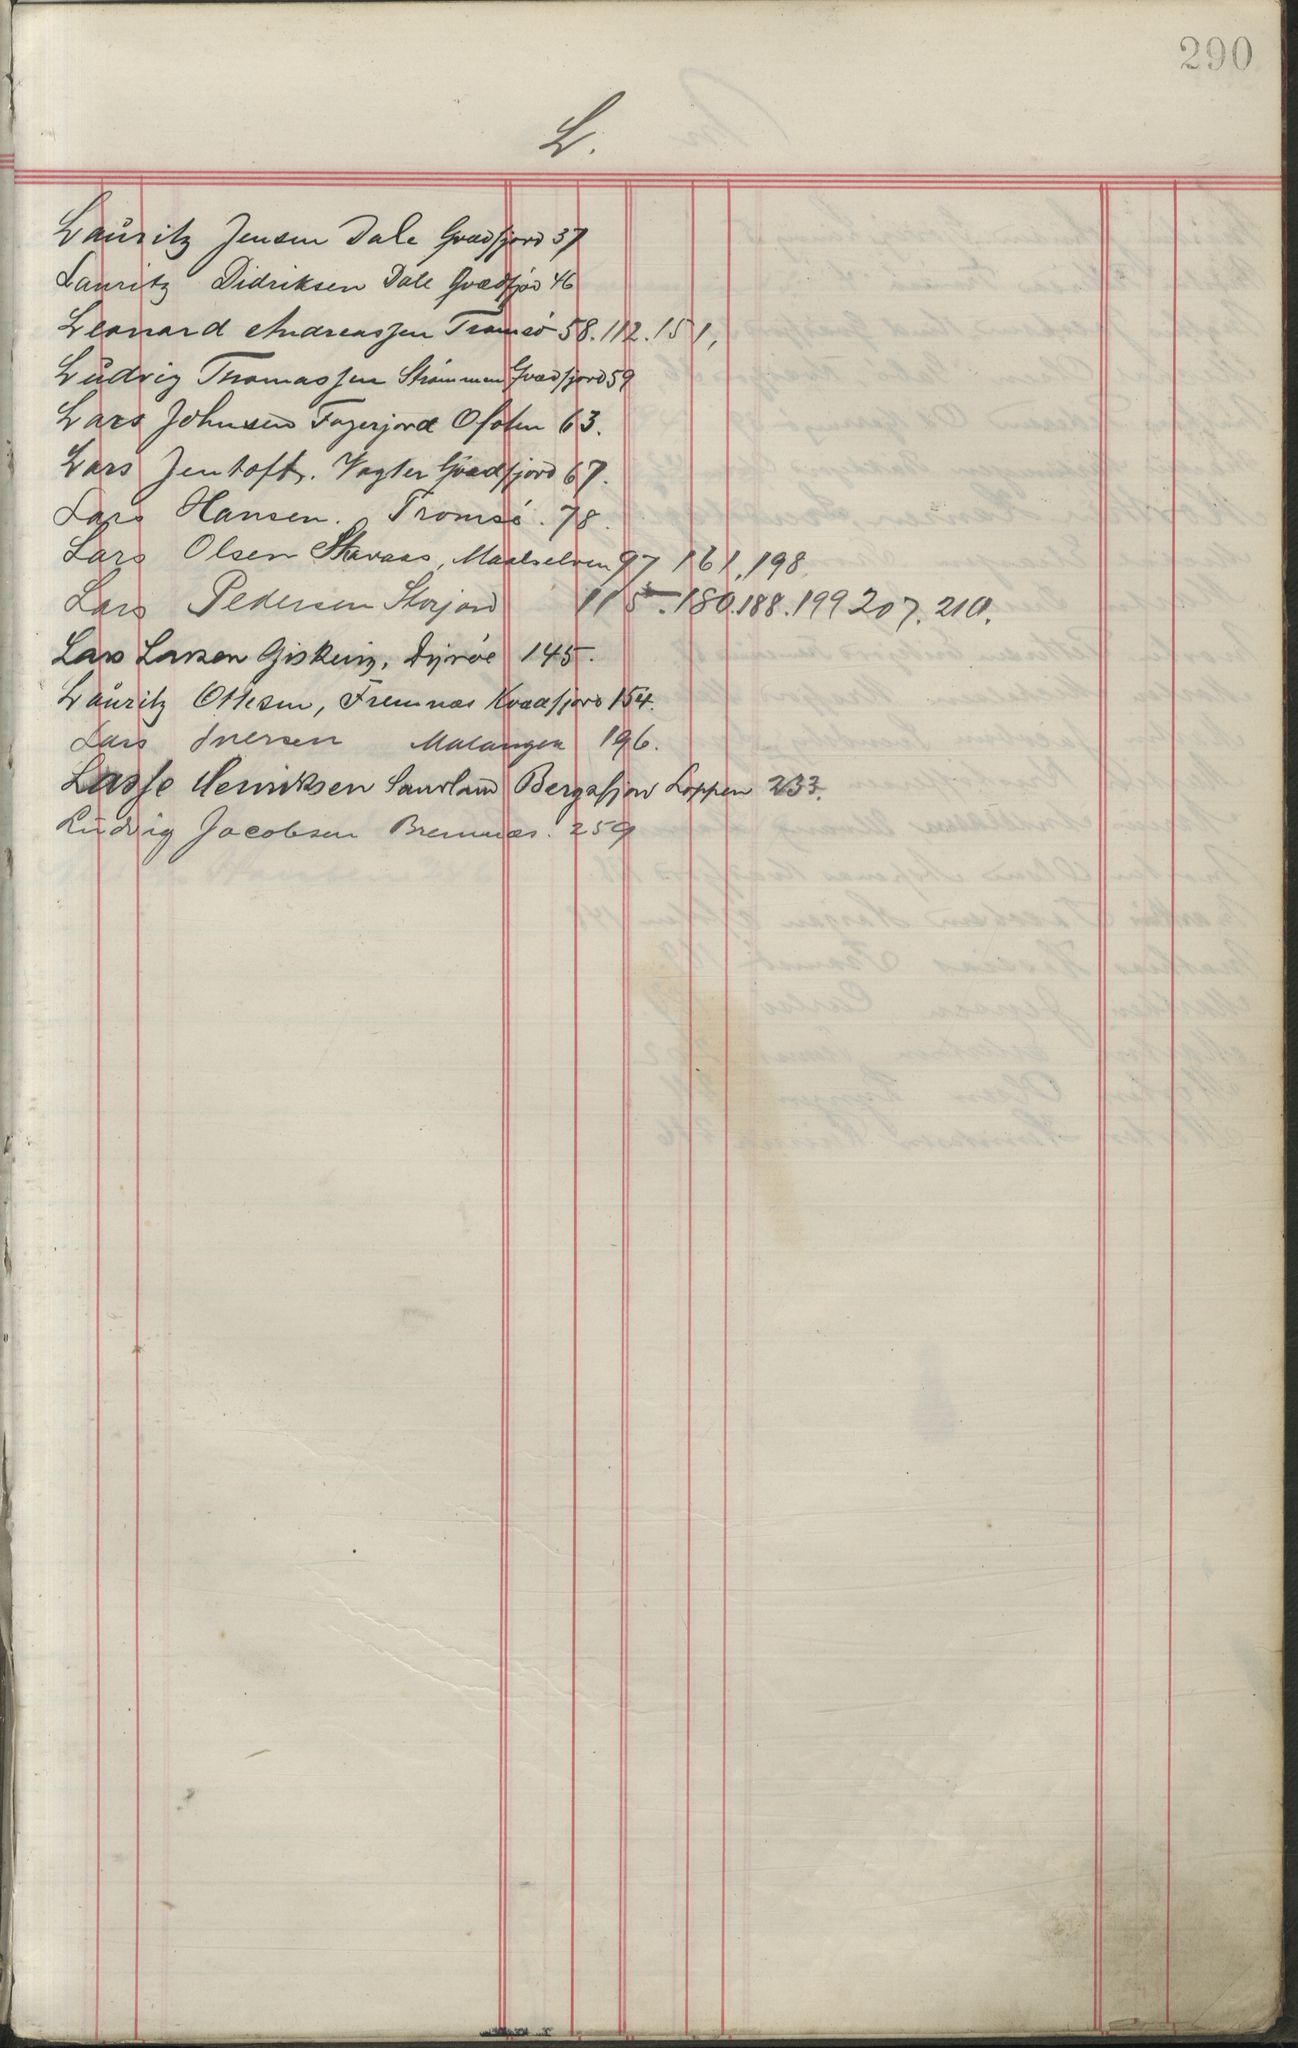 290
L.
Lauritz Jensen Dale Gvædfjord 37
Lauritz Didriksen Dale Gvædfjor 46
Leonard Andreassen Tromsø 58. 112. 151,
Ludvig Thomassen Strømmen Gvædfjord 59
Lars Johnsen Fagerjord Ofoten 63.
Lars Jentoft. Vogter Gvædfjord 67.
Lars Hansen. Tromsø. 78.
Lars Olsen Maalselven 97 161, 198
Lars Pedersen Storjord 115. 180. 188. 199 207. 210.
Lars Larsen Dyrøe 145.
Lauritz Ottesen, Fremnæs Kvædfjord 154.
Lars Iversen Malangen 196.
Lasse Henriksen Bergsfjor Loppen 233.
Ludvig Jacobsen Bremnæs. 259